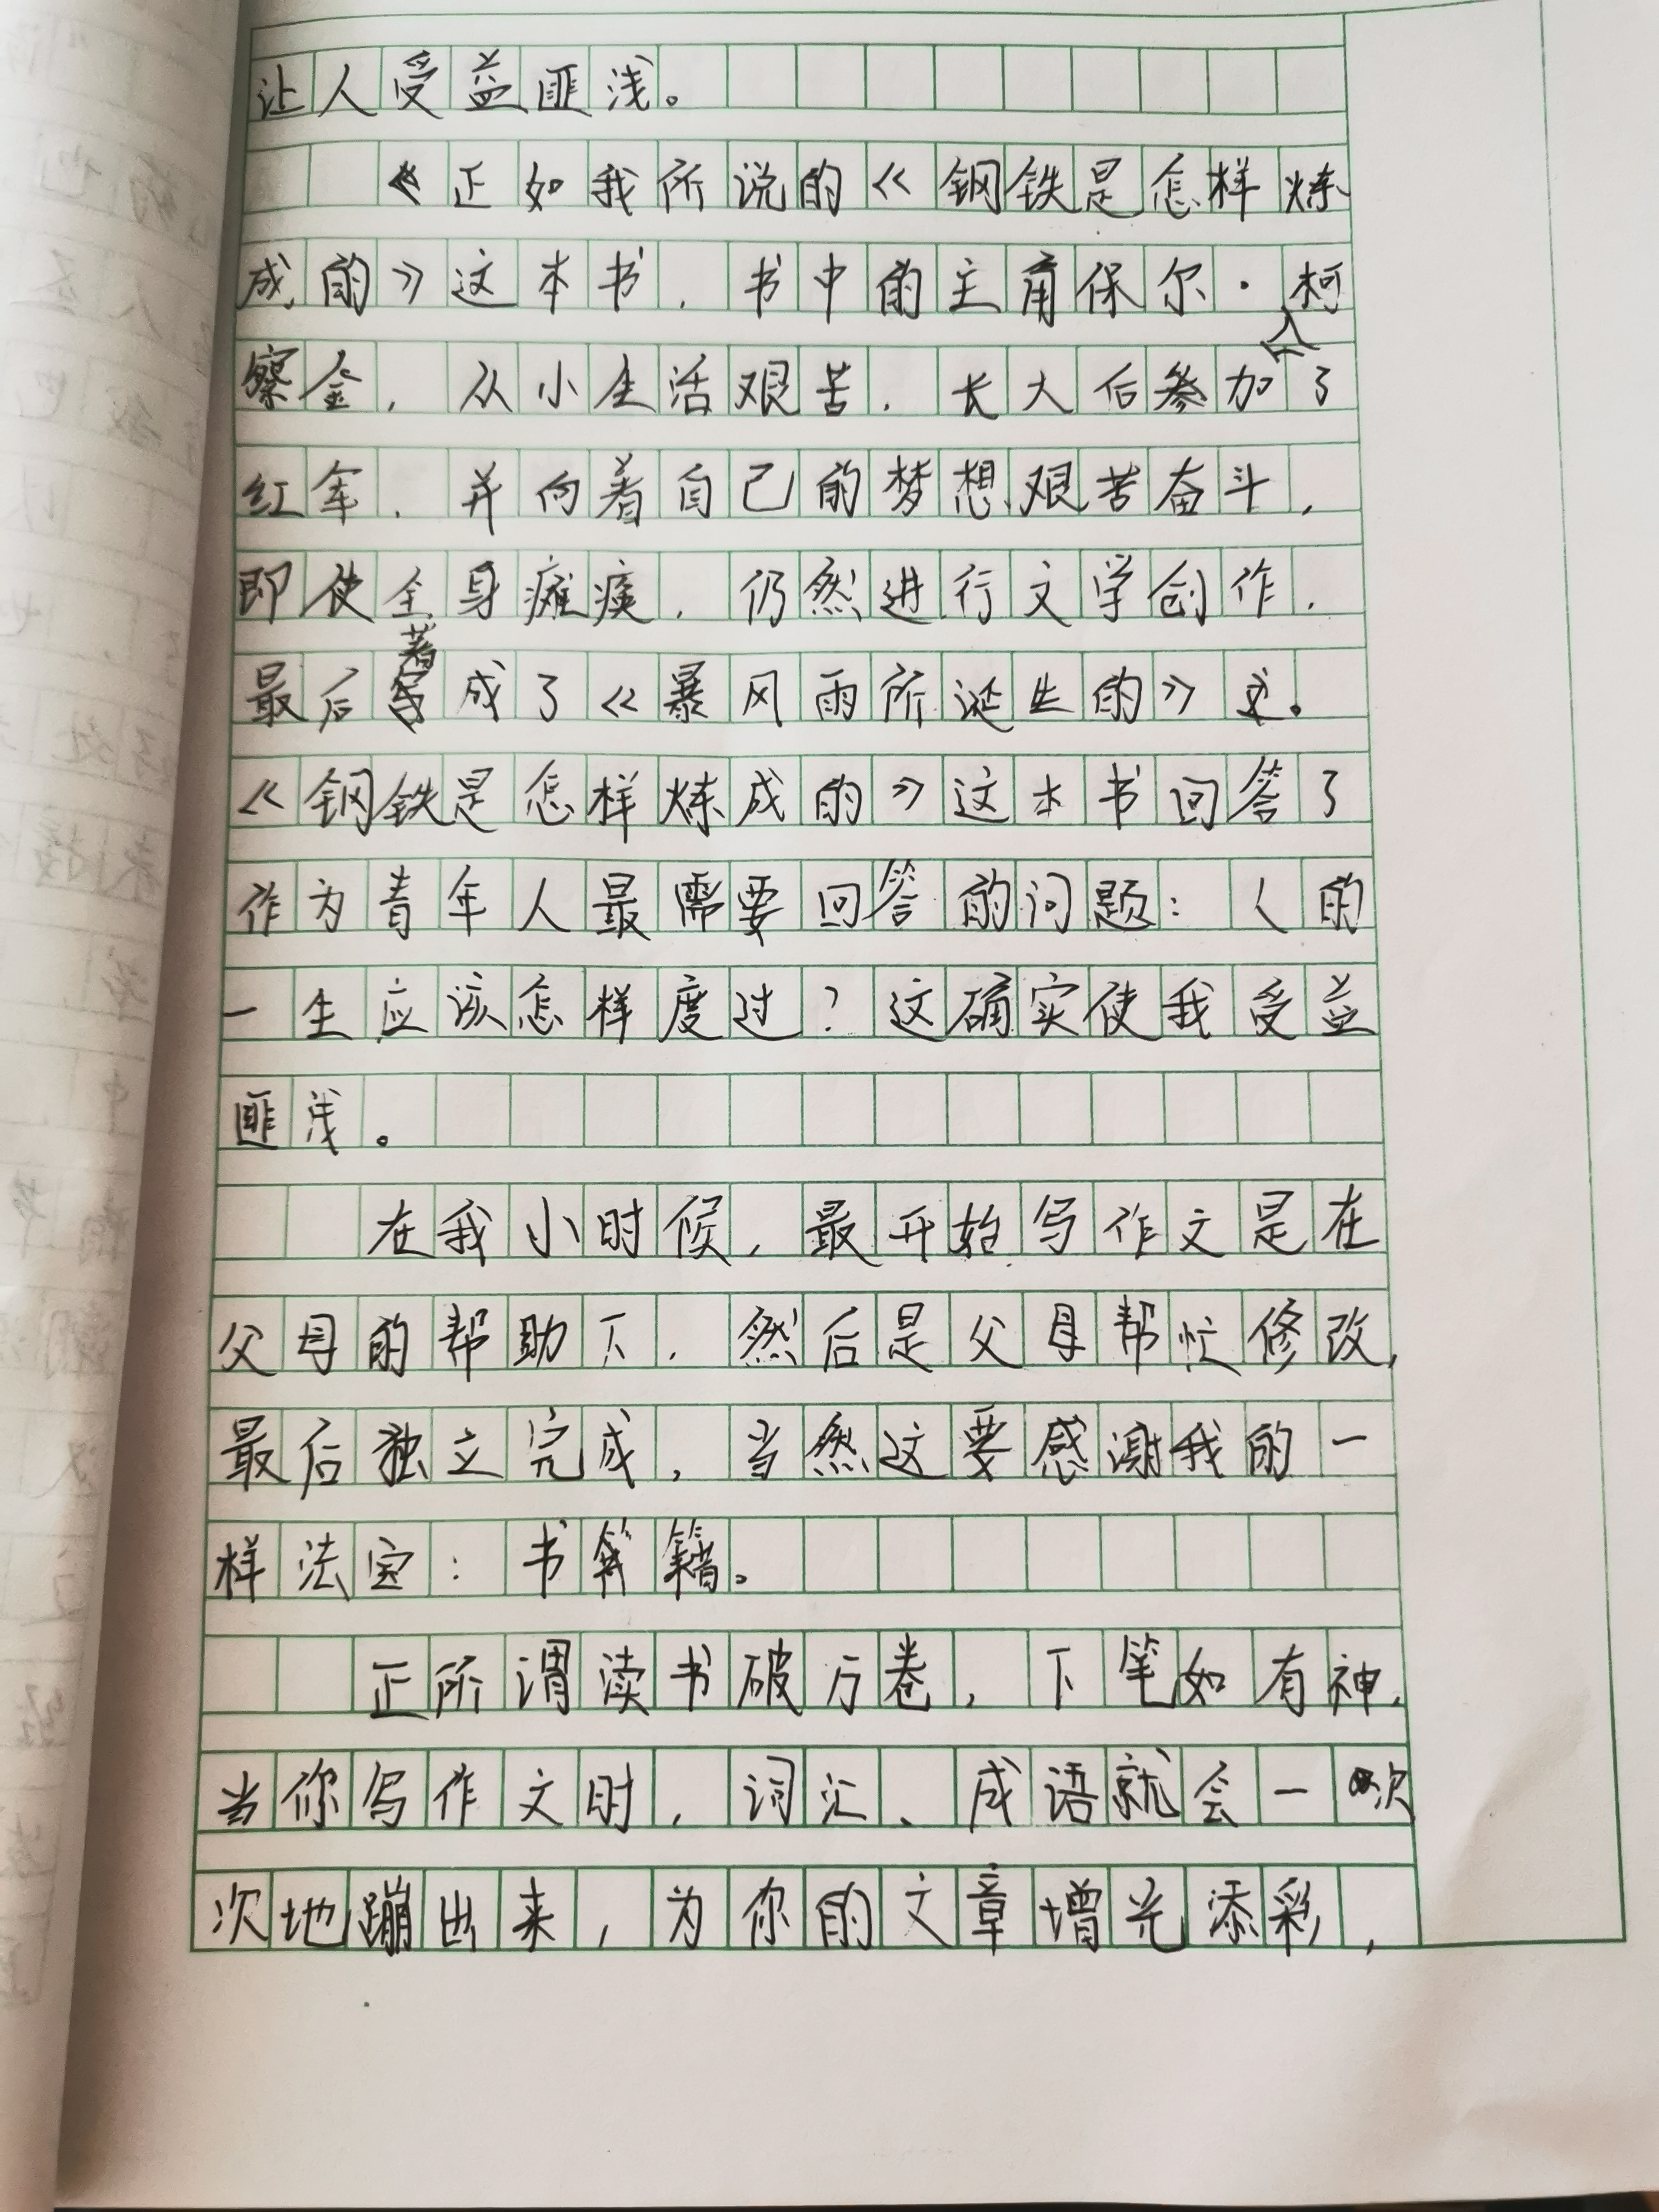 让人受益匪浅。
正如我所说的《钢铁是怎样炼
成的》这本书，书中的主角保尔·柯
察金，从小生活艰苦，长大后参加入了
红军，并向着自己的梦想艰苦奋斗，
即使全身瘫痪，仍然进行文学创作，
最后著成了《暴风雨所诞生的》
《钢铁是怎样炼成的》这本书回答了
作为青年人最需要回答的问题：人的
一生应该怎样度过？这确实使我受益
匪浅。
在我小时候，最开始写作文是在
父母的帮助下，然后是父母帮忙修改，
最后独立完成，当然这要感谢我的一
样法宝：书籍。
正所谓读书破万卷，下笔如有神，
当你写作文时，词汇、成语就会一次
次地蹦出来，为你的文章增光添彩，